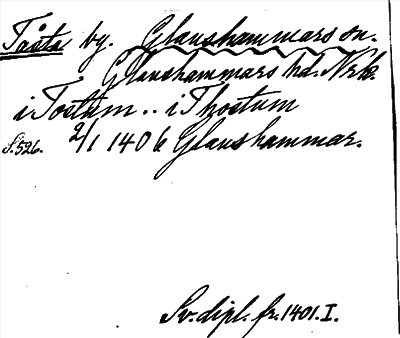 Tåsta by. Glanshammars sn.
Glanshammars hd. Nrk.
i Tostum.. i Thostum
S. 526. 2/1 1406 Glanshammar.
Sv. dipl. fr. 1401. I.